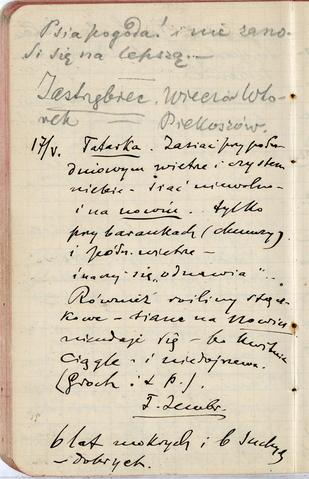 Psia pogoda! i nie zano-
si się na lepszą...
Jastrzębiec. Wierzba Wło-
rek Piekoszów.
17/V. Tatarka. Zasiać przy połu-
dniowym wietrze i czystem
niebie - siać niewolno
i na nowiu.. tylko
przy barankach (chmury)
i półn. wietrze -
inaczej się "odnawia"..
Również rośliny strącz-
kowe - siane na nowiu
nieudaje się - bo kwitnie
ciągle - i niedojrzewa.
(Groch i t p.).
6 lat mokrych i 6 suchych
- dobrych.